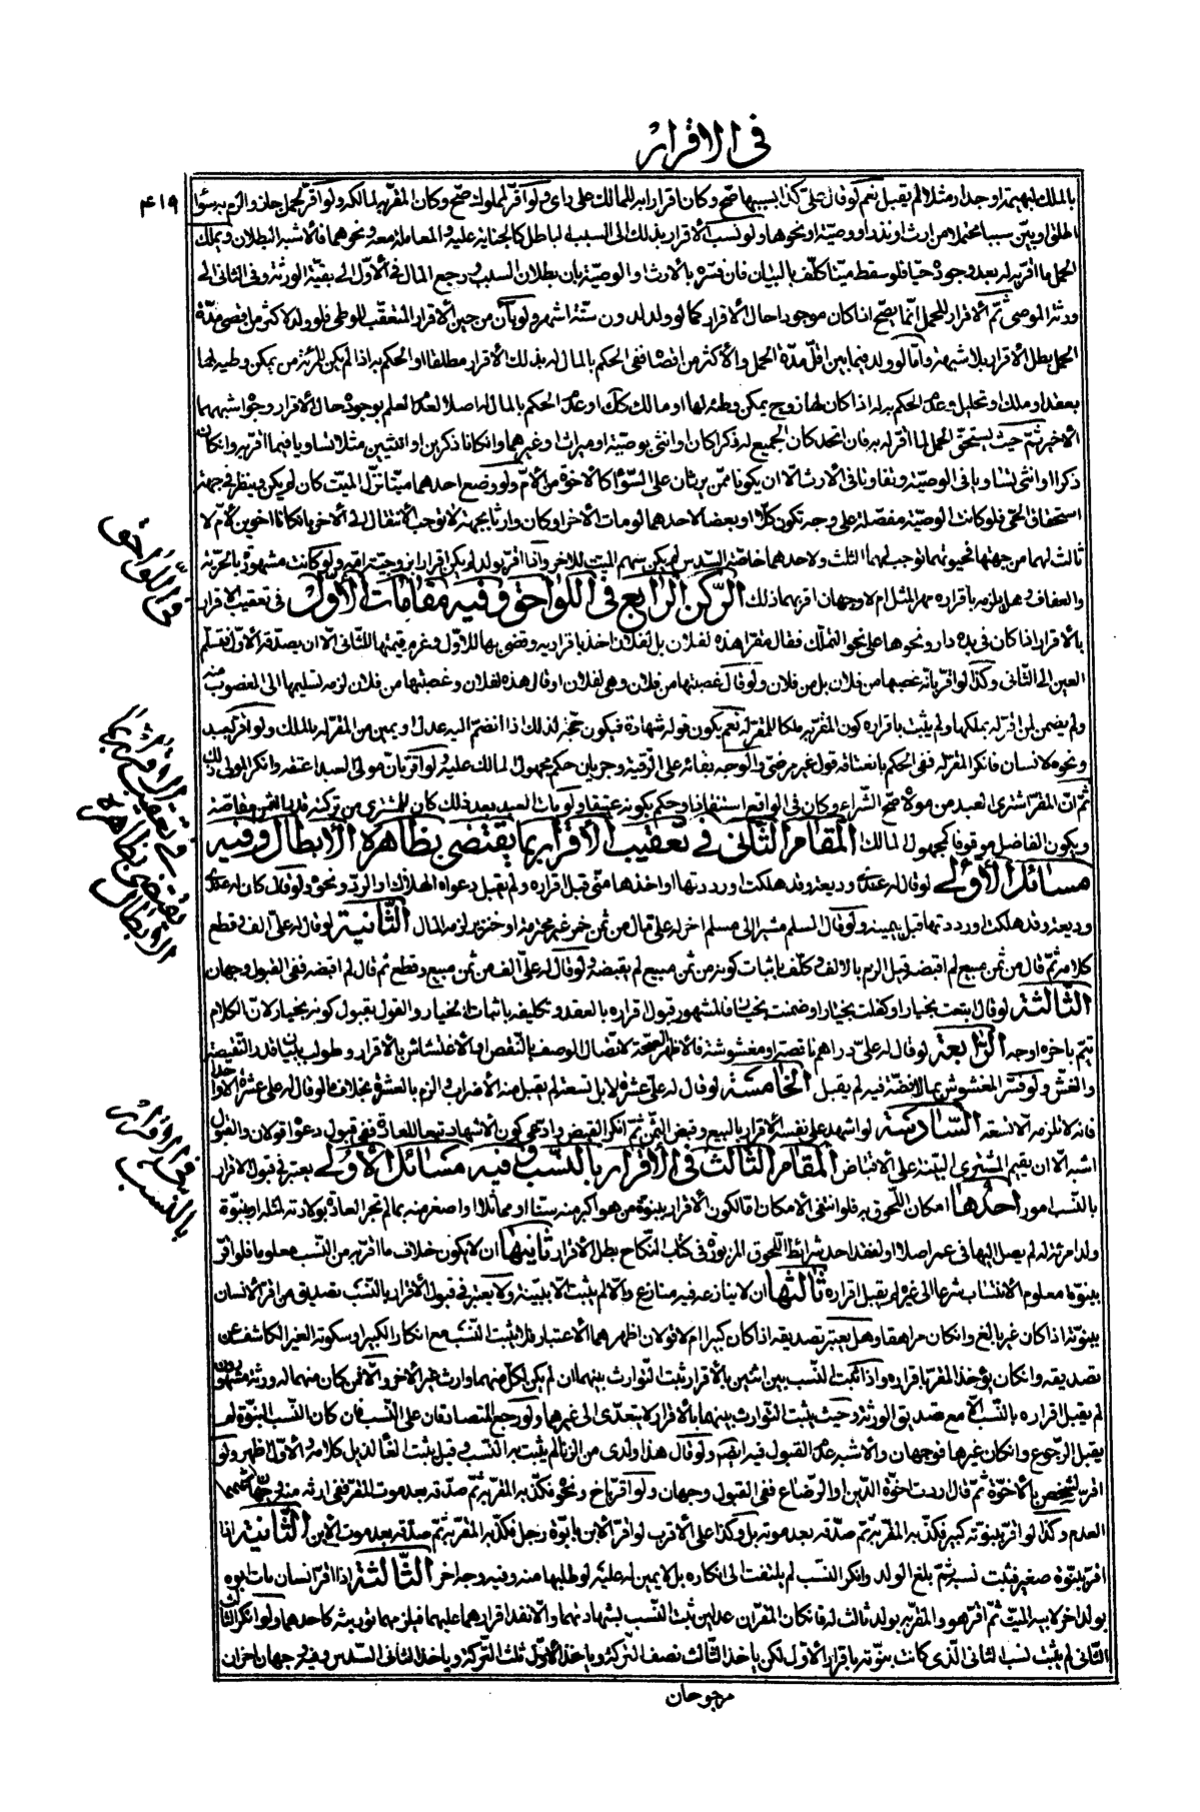 فى الاقرار
۴۱۹
بالملك للبهيمة او جدار مثلا لم يقبل نعم لو قال علىّ كذا بسببها صح وكان اقرارا به للمالك على راى ولو اقرّ لمملوك صح وكان المقرّ به لمالكه ولو اقرّ لحمل جاز والزم به سواء
اطلق او بيّن سببا محتملا من ارث او نذر او وصيّة او نحوها ولو نسب الاقرار بذلك الى السبب الباطل كالجناية عليه والمعاملة معه ونحوهما فالاشبه البطلان ويملك
الحمل ما اقرّ به له بعد وجوده حيّا فلو سقط ميّتا كلّف بالبيان فان فسّره بالارث او الوصيّة بان بطلان السبب ورجع المال فى الاوّل الى بقيّة الورثة وفى الثانى الى
ورثة الموصى ثمّ الاقرار للحمل انّما يصحّ اذا كان موجودا حال الاقرار كما لو ولد لدون ستّة اشهر ولو بان من حين الاقرار المتعقّب للوطى فلو ولد لاكثر من اقصى مدّة
الحمل بطل الاقرار بلا شبهة وامّا لو ولد فيما بين اقلّ مدّة الحمل والاكثر من اقصاه ففى الحكم بالمال له بذلك الاقرار مطلقا او الحكم به اذا لم يكن للمرئة من يمكن وطيه لها
بعقد او ملك او تحليل وعدم الحكم به له اذا كان لها زوج يمكن وطئه لها او مالك كك او عدم الحكم بالمال له اصلا لعدم العلم بوجوده حال الاقرار وجوه اشبهها
الاخير ثمّ حيث يستحقّ الحمل لما اقرّ له به فان اتحد كان الجميع له ذكرا كان او انثى بوصيّة او ميراث او غيرهما وان كانا ذكرين او انثيين مثلا تساويا فيما اقرّ به وان كان
ذكرا او انثى تساويا فى الوصيّة وتفاوتا فى الارث الّا ان يكونا ممّن يرثان على السّواء كالاخوة من الامّ ولو وضع احدهما ميّتا نزّل الميّت كان لم يكن وينظر فى جهة
استحقاق الحىّ فلو كانت الوصيّة مفصّلة على وجه تكون كلّا او بعضا لاحدهما لو مات الاخر او كان وارثا بجهة لا توجب الانتقال الى الاخر بان كانا اخوين لامّ لا
ثالث لهما من جهتها فحيوتهما توجب لهما الثلث ولاحدهما خاصّة السّدس لم يكن سهم الميّت للاخر واذا اقرّ بولد لم يكن اقرارا بزوجيّة امّه ولو كانت مشهورة بالحرّية
والعفاف وهل يلزمه باقراره مهر المثل ام لا وجهان اقربهما ذلك الرّكن الرّابع فى اللّواحق وفيه مقامات الاوّل فى تعقيب الاقرار
بالاقرار اذا كان فى يده دار ونحوها على نحو التملّك فقال مقرّا هذه لفلان بل لفلان اخذ باقراريه وقضى بها للاوّل وغرم قيمتها للثّانى الّا ان يصدّقه الاوّل فتسلّم
العين الى الثّانى وكذا لو اقرّ بانّه غصبها من فلان بل من فلان ولو قال غصبتها من فلان وهى لفلان او قال هذه لفلان وغصبتها من فلان لزمه تسليمها الى المغصوب منه
ولم يضمن لمن اقرّ له بملكها ولم يثبت باقراره كون المقرّ به ملكا للمقرّ له نعم يكون قوله شهادة فيكون حجّة لذلك اذا انضمّ اليه عدل او يمين من المقرّ له بالملك ولو اقرّ بعبد
ونحوه لانسان فانكر المقرّ له ففى الحكم بانعتاقه قول غير مرضىّ والوجه بقائه على الرّقية وجريان حكم مجهول المالك عليه ولو اقرّ بانّ مولى العبد اعتقه وانكر المولى ذلك
ثمّ انّ المقرّ اشترى العبد من مولاه صحّ الشّراء وكان فى الواقع استنقاذا وحكم بكونه عتيقا ولو مات العبد بعد ذلك كان للمشترى من تركته قدر الثمن مقاصّة
ويكون الفاضل موقوفا كمجهول المالك المقام الثّانى فى تعقيب الاقرار بما يقتضى بظاهره الابطال وفيه
مسائل الاولى لو قال له عندى وديعة وقد هلكت او رددتها واخذها منّى قبل اقراره ولم يقبل دعواه الهلاك او الردّ ونحوه ولو قال كان له عندى
وديعة وقد هلكت او رددتها قبل بيمينه ولو قال مسلم مشيرا الى مسلم اخر له علىّ مال من ثمن خمر غير محترمة او خنزير لزمه المال الثّانية لو قال له علىّ الف وقطع
كلامه ثمّ قال من ثمن مبيع لم اقبضه قيل الزم بالالف وكلّف باثبات كونه من ثمن مبيع لم يقبضه ولو قال له علىّ الف من ثمن مبيع وقطع ثمّ قال لم اقبضه ففى القبول وجهان
الثّالثة لو قال ابتعت بخيار او كفلت بخيار او ضمنت بخيار فالمشهور قبول اقراره بالعقد وتكليفه باثبات الخيار والقول بقبول كونه بخيار لانّ الكلام
يتمّ باخره اوجه الرّابعة لو قال له علىّ دراهم ناقصة او مغشوشة فالاظهر الصحّة لاتّصال الوصف بالنّقص او الاغتشاش بالاقرار وطولب ببيان قدر النّقيصة
والغشّ ولو فسّر المغشوش بما لا فضّة فيه لم يقبل الخامسة لو قال له علىّ عشرة لا بل تسعة لم يقبل منه الاضراب والزم بالعشرة بخلاف ما لو قال له علىّ عشرة الّا واحدا
فانّه لا تلزمه الّا تسعة السّادسة لو اشهد على نفسه الاقرار بالبيع وقبض الثّمن ثمّ انكر القبض وادّعى كون الاشهاد تبعا للعادة ففى قبول دعواه قولان والقبول
اشبه الّا ان يقيم المشترى البيّنة على الاقباض المقام الثّالث فى الاقرار بالنّسب وفيه مسائل الاولى يعتبر فى قبول الاقرار
بالنّسب امور احدها امكان اللّحوق به فلو انتفى الامكان امّا لكون الاقرار ببنوّة من هو اكبر منه سنّا او مماثلا او اصغر منه بما لم تجر العادة بولادته لمثله او ببنوّة
ولد امرئة له لم يصل اليها فى عمره اصلا او لفقد احد شرائط اللّحوق المزبورة فى كتاب النّكاح بطل الاقرار ثانيها ان لا يكون خلاف ما اقرّ به من النّسب معلوما فلو اقرّ
ببنوّة معلوم الانتساب شرعا الى غيره لم يقبل اقراره ثالثها ان لا ينازعه فيه منازع والّا لم يثبت الّا ببيّنة ولا يعتبر فى قبول الاقرار بالنّسب تصديق من اقرّ الانسان
ببنوّته اذا كان غير بالغ وان كان مراهقا وهل يعتبر تصديقه اذا كان كبيرا ام لا قولان اظهرهما الاعتبار فلا يثبت النّسب مع انكار الكبير او سكوته الغير الكاشف عن
تصديقه وان كان يؤخذ المقرّ باقراره واذا ثبت النّسب بين اثنين بالاقرار ثبت التّوارث بينهما ان لم يكن لكلّ منهما وارث غير الاخر والّا فمن كان منهما له ورثة مشهورون
لم يقبل اقراره بالنّسب الّا مع تصديق الورثة وحيث يثبت التوارث بينهما بالاقرار لا يتعدّى الى غيرهما ولو رجع المتصادقان على النّسب فان كان النّسب البنوّة لم
يقبل الرّجوع وان كان غيرها فوجهان والاشبه عدم القبول فيه ايضا ولو قال هذا ولدى من الزّنا لم يثبت به النّسب وقيل يثبت الغاء لذيل كلامه والاوّل اظهر ولو
اقرّ لشخص بالاخوّة ثمّ قال اردت اخوّة الدّين او الرضاع ففى القبول وجهان ولو اقرّ باخ ونحوه فكذّبه المقرّ به ثمّ صدّقه بعد موت المقرّ ففى ارثه منه وجهان اشبههما
العدم وكذا لو اقرّ ببنوّة كبير فكذّبه المقرّ به ثمّ صدّقه بعد موته بل وكذا على الاقرب لو اقرّ الابن بابوّة رجل فكذّبه المقرّ به ثمّ صدّقه بعد موت الابن الثّانية اذا
اقرّ ببنوّة صغير فثبت نسبه ثمّ بلغ الولد وانكر النّسب لم يلتفت الى انكاره بل لا يمين له عليه لو طلبها منه وفيه وجه اخر الثّالثة اذا اقرّ انسان مات ابوه
بولد اخر لابيه الميّت ثمّ اقرّ هو والمقرّ به بولد ثالث له فان كان المقرّان عدلين ثبت النّسب بشهادتهما والّا نفذ اقرارهما عليهما فيلزمهما توريثه كاحدهما ولو انكر الثّالث
الثّانى لم يثبت نسب الثانى الّذى كانت بنوّته باقرار الاوّل لكن ياخذ الثّالث نصف التّركة وياخذ الاوّل ثلث التّركة وياخذ الثانى السّدس وفيه وجهان اخران
مرجوحان
فى اللّواحق
فى تعقيب الاقرار بما
يقتضى بظاهره
الابطال
فى الاقرار
بالنّسب